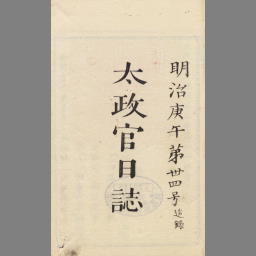 明治庚午第卅四号追録
太政官日誌